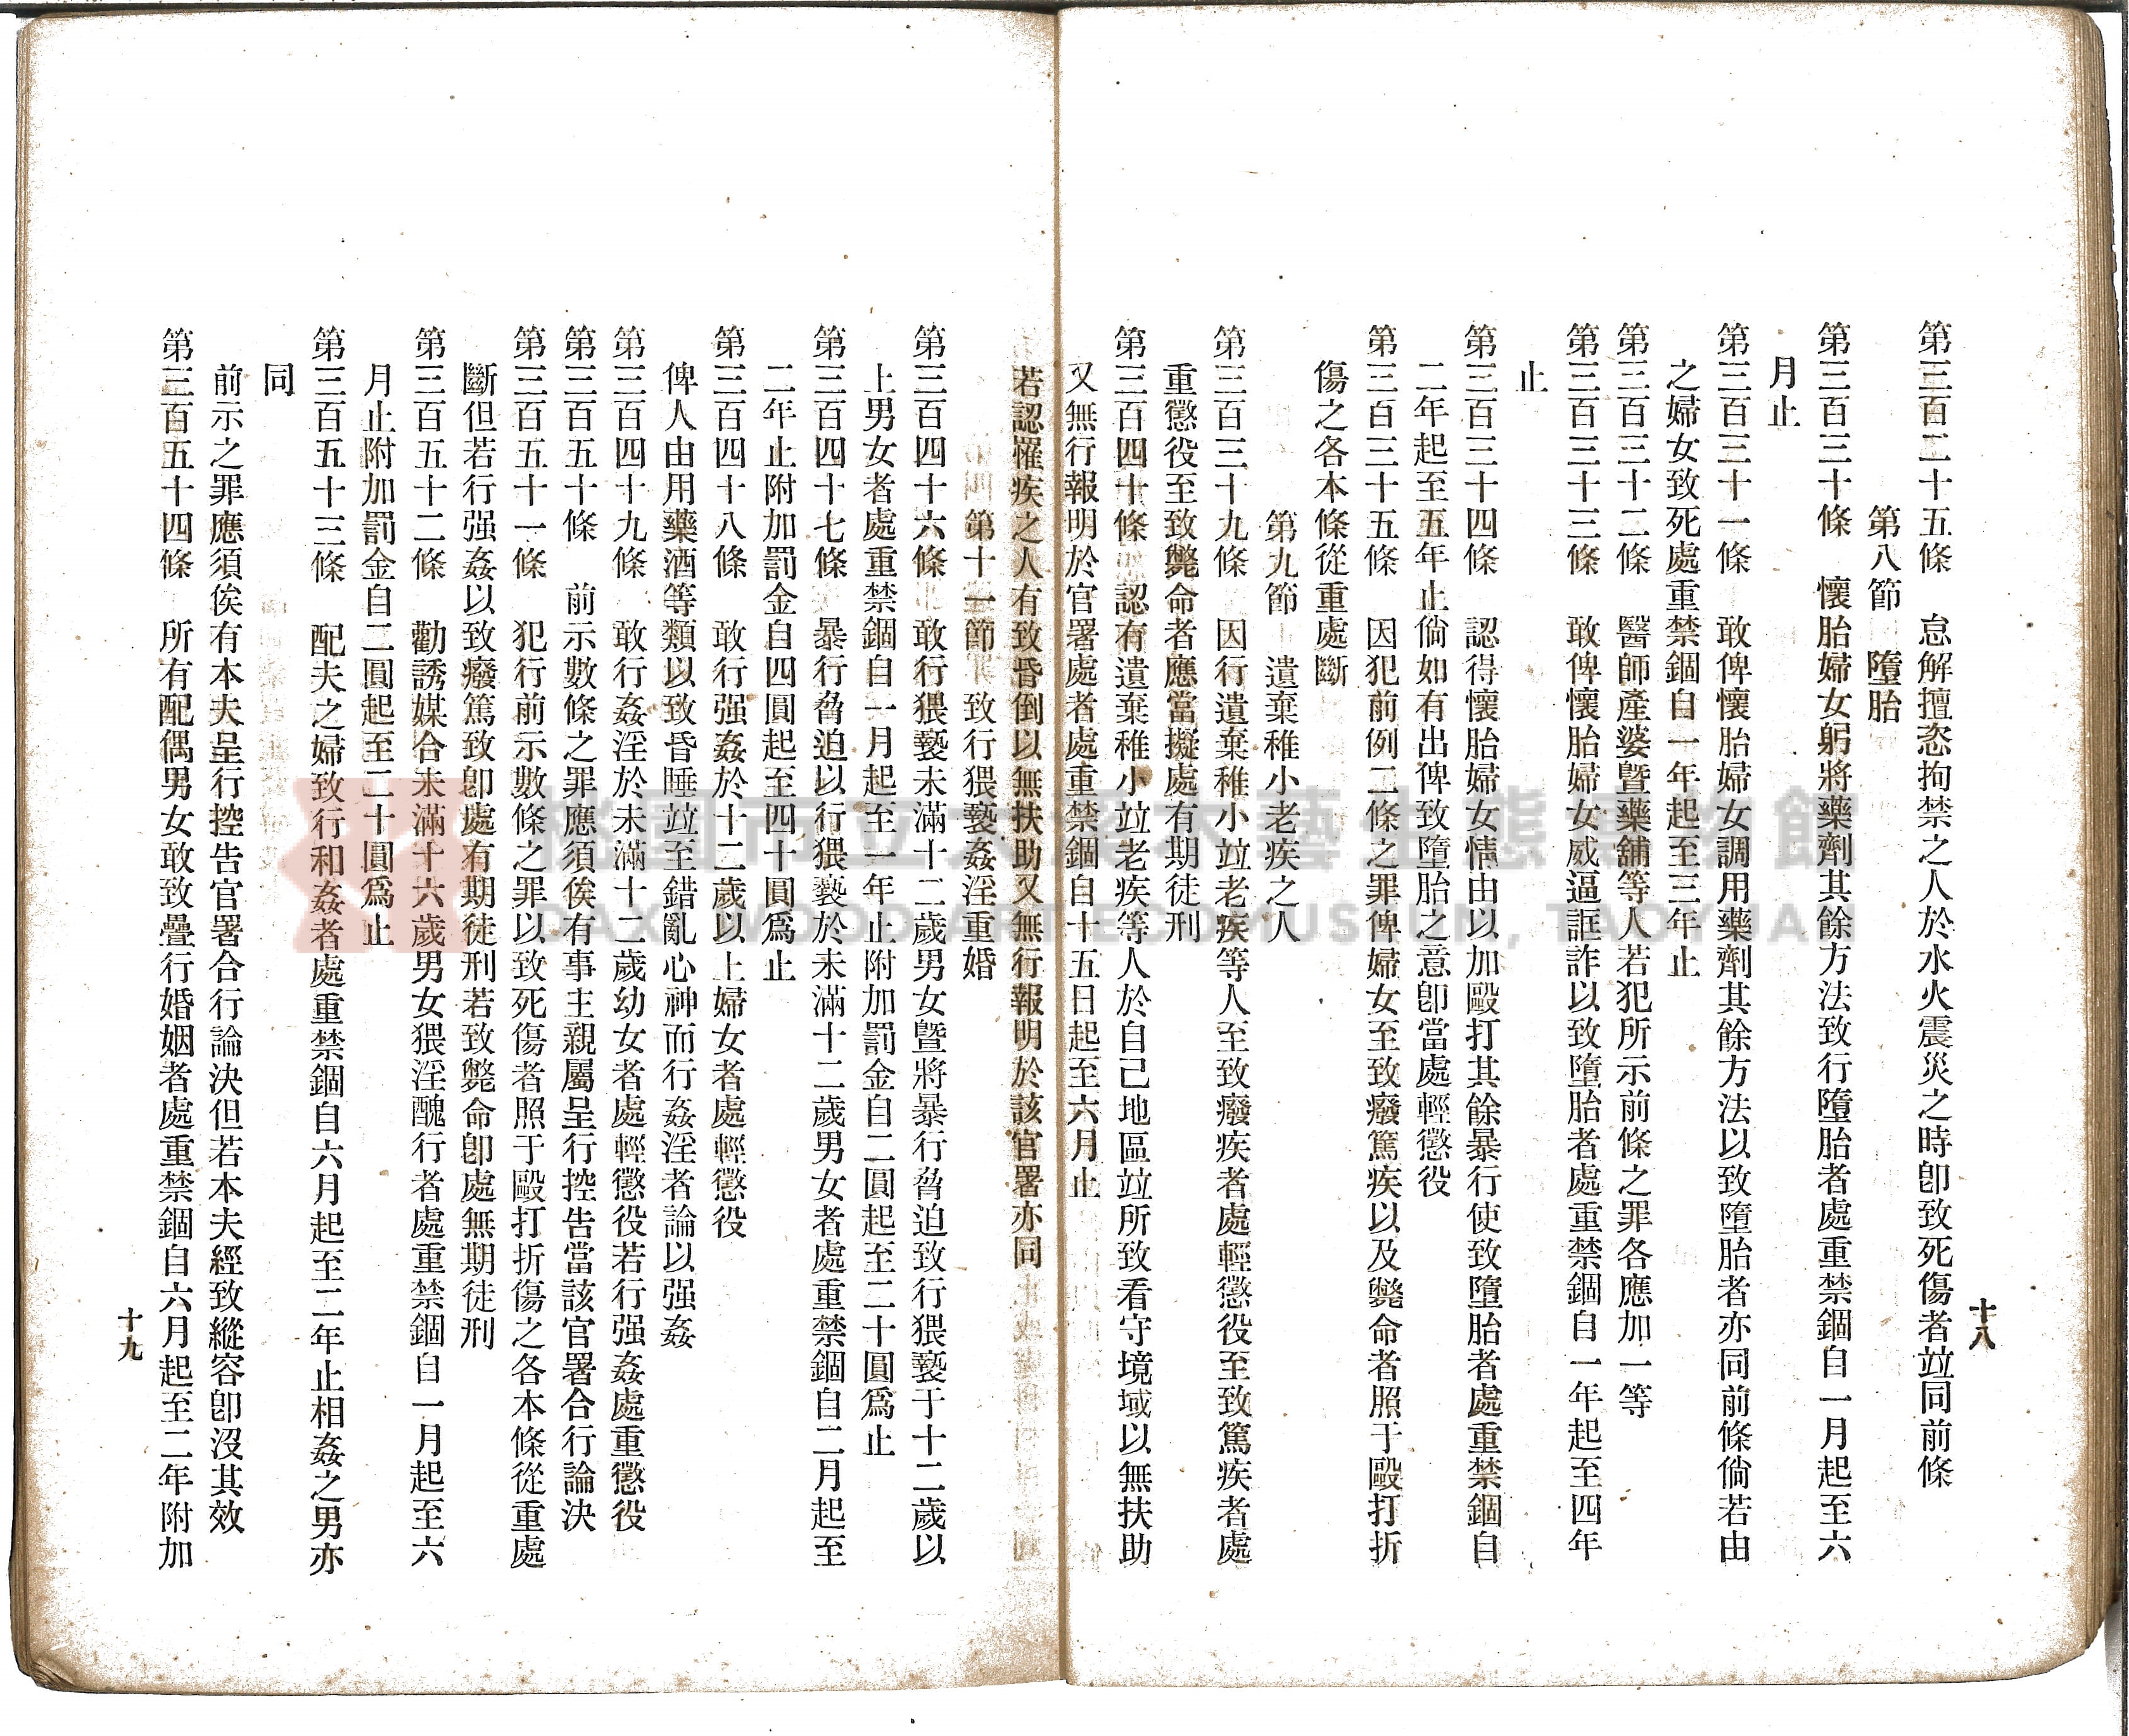 十八
第三百二十五條　怠解擅恣拘禁之人於水火震災之時卽致死傷者竝同前條
第八節　墮胎
第三百三十條　懷胎婦女躬將藥劑其餘方法致行墮胎者處重禁錮自一月起至六
月止
第三百三十一條　敢俾懷胎婦女調用藥劑其餘方法以致墮胎者亦同前條倘若由
之婦女致死處重禁錮自一年起至三年止
第三百三十二條　醫師產婆曁藥舖等人若犯所示前條之罪各應加一等
第三百三十三條　敢俾懷胎婦女威逼誆詐以致墮胎者處重禁錮自一年起至四年
止
第三百三十四條　認得懷胎婦女情由以加毆打其餘暴行使致墮胎者處重禁錮自
二年起至五年止倘如有出俾致墮胎之意卽當處輕懲役
第三百三十五條　因犯前例二條之罪俾婦女至致癈篤疾以及斃命者照于毆打折
傷之各本條從重處斷
第九節　遺棄稚小老疾之人
第三百三十九條　因行遺棄稚小竝老疾等人至致癈疾者處輕懲役至致篤疾者處
重懲役至致斃命者應當擬處有期徒刑
第三百四十條　認有遺棄稚小竝老疾等人於自己地區竝所致看守境域以無扶助
又無行報明於官署處者處重禁錮自十五日起至六月止
若認罹疾之人有致昏倒以無扶助又無行報明於該官署亦同
第十一節　致行猥褻姦淫重婚
第三百四十六條　敢行猥褻未滿十二歲男女曁將暴行脅迫致行猥褻于十二歲以
上男女者處重禁錮自一月起至一年止附加罰金自二圓起至二十圓爲止
第三百四十七條　暴行脅迫以行猥褻於未滿十二歲男女者處重禁錮自二月起至
二年止附加罰金自四圓起至四十圓爲止
第三百四十八條　敢行强姦於十二歲以上婦女者處輕懲役
俾人由用藥酒等類以致昏睡竝至錯亂心神而行姦淫者論以强姦
第三百四十九條　敢行姦淫於未滿十二歲幼女者處輕懲役若行强姦處重懲役
第三百五十條　前示數條之罪應須俟有事主親屬呈行控告當該官署合行論決
第三百五十一條　犯行前示數條之罪以致死傷者照于毆打折傷之各本條從重處
斷但若行强姦以致癈篤致卽處有期徒刑若致斃命卽處無期徒刑
第三百五十二條　勸誘媒合未滿十六歲男女猥淫醜行者處重禁錮自一月起至六
月止附加罰金自二圓起至二十圓爲止
第三百五十三條　配夫之婦致行和姦者處重禁錮自六月起至二年止相姦之男亦
同
前示之罪應須俟有本夫呈行控告官署合行論決但若本夫經致縱容卽沒其效
第三百五十四條　所有配偶男女敢致疊行婚姻者處重禁錮自六月起至二年附加
十九
桃園市立大溪木藝生態博物館
DAXI WOOD ART ECOMUSEUM, TAOYUAN